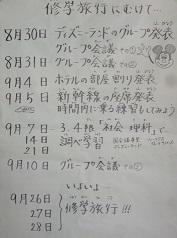 修学旅行にむけて…
8月30日 ディズニーランドのグループ発表
グループ会議 での
8月31日 グループ会議
9月4日 ホテルの部屋割り発表
9月5日 新幹線の座席発表
時間内に乗る練習もしてみよう
9月7日 3.4校 社会 理科で
14日 調べ学習
21日
9月10日 グループ会議
いよいよ…
9月26日
27日 修学旅行!!!
28日